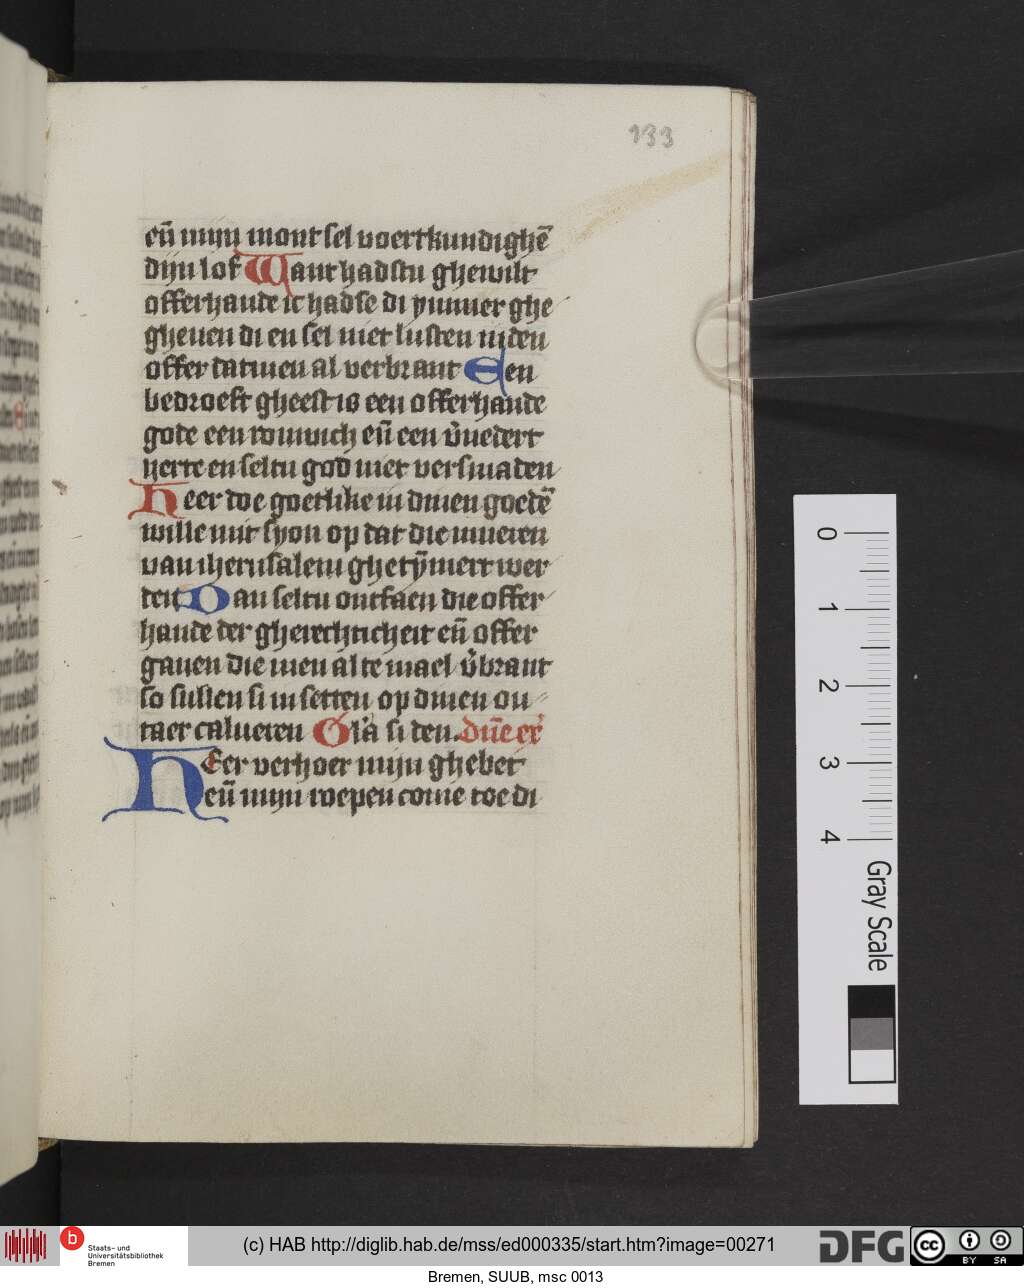 133
eñ mijn mont sel voertkundighē
dijn lof Want hadstu ghewilt
offerhande ic hadse di ymmer ghe
gheuen di en sel niet lusten inden
offer datmen al verbrant Een
bedroeft gheest is een offerhande
gode een rouwich eñ een v̾nedert
herte en seltu god niet versmaden
Heer doe goetlike in dinen goedē
wille mit syon op dat die mueren
van iherusalem ghetȳmert wer
den Dan seltu ontfaen die offer
hande der gherechticheit eñ offer
gauen die men alte mael v̾brant
so sullen si in setten op dinen ou
taer calueren Gl'a si den. Dñe ex̾
HEer verhoer mijn ghebet
eñ mijn roepen come toe di
0
1
2
3
4
Gray Scale
b
Staats- und
Universitätsbibliothek
Bremen
(c) HAB http://diglib.hab.de/mss/ed000335/start.htm?image=00271
DFG
cc
BY SA
Bremen, SUUB, msc 0013